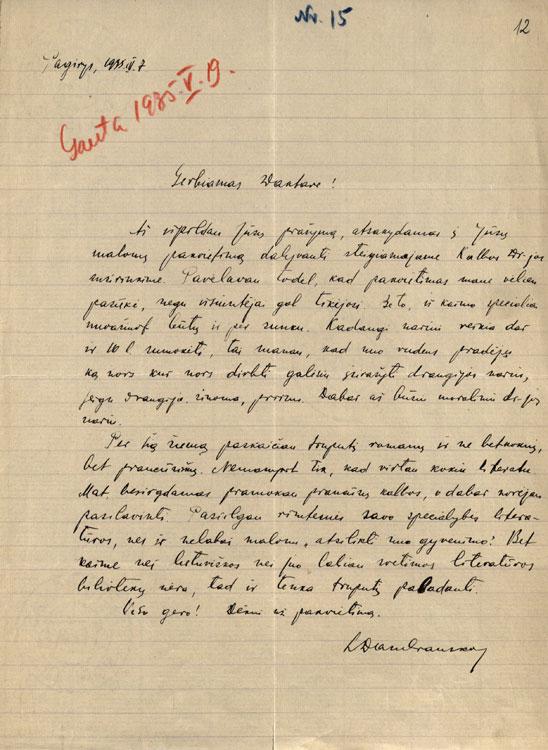 Nr. 15
12
Pagirys, 1935.IV.7
Gauta 1935.V.19.
Gerbiamas Daktare!
Aš vipildau Jūsų prašymą, atsakydamas į Jūsų
malonų pakvietimą dalyvauti steigiamajame Kalbos Dr-jos
susirinkime. Pavėlavau todel, kad pakvietimas mane vėliau
pasiekė, negu visuomenėje gal tikėjosi. Be to, iš kaimo specialiai
nuvažiuot būtų ir per sunku. Kadangi nariui reikia dar
ir 10 l. sumokėti, tai manau, kad nuo rudens pradėjęs
ką nors kur nors dirbti galėsiu įsirašyti draugijos nariu,
jeigu draugija, žinoma, priims. Dabar aš būsiu moraliniu dr-jos
nariu.
Per šią žiemą paskaičiau truputį romanų ir ne betkokių,
bet prancūziškų. Nemanyret tik, kad virtau kokiu literatu.
Mat, besirgdamas pramokau prancūzų kalbos, o dabar norėjau
pasilavinti. Pasiilgau rimtesnės savo specialybės litera-
tūros, nes ir nelabai malonu atsilikti nuo gyvenimo! Bet
kaime nei lietuviškos nei juo labiau svetimos literatūros
bibliotekų nėra, tad ir tenka truputį pabadauti.
Viso gero! Dėkui už pakvietimą.
LDambrauskas